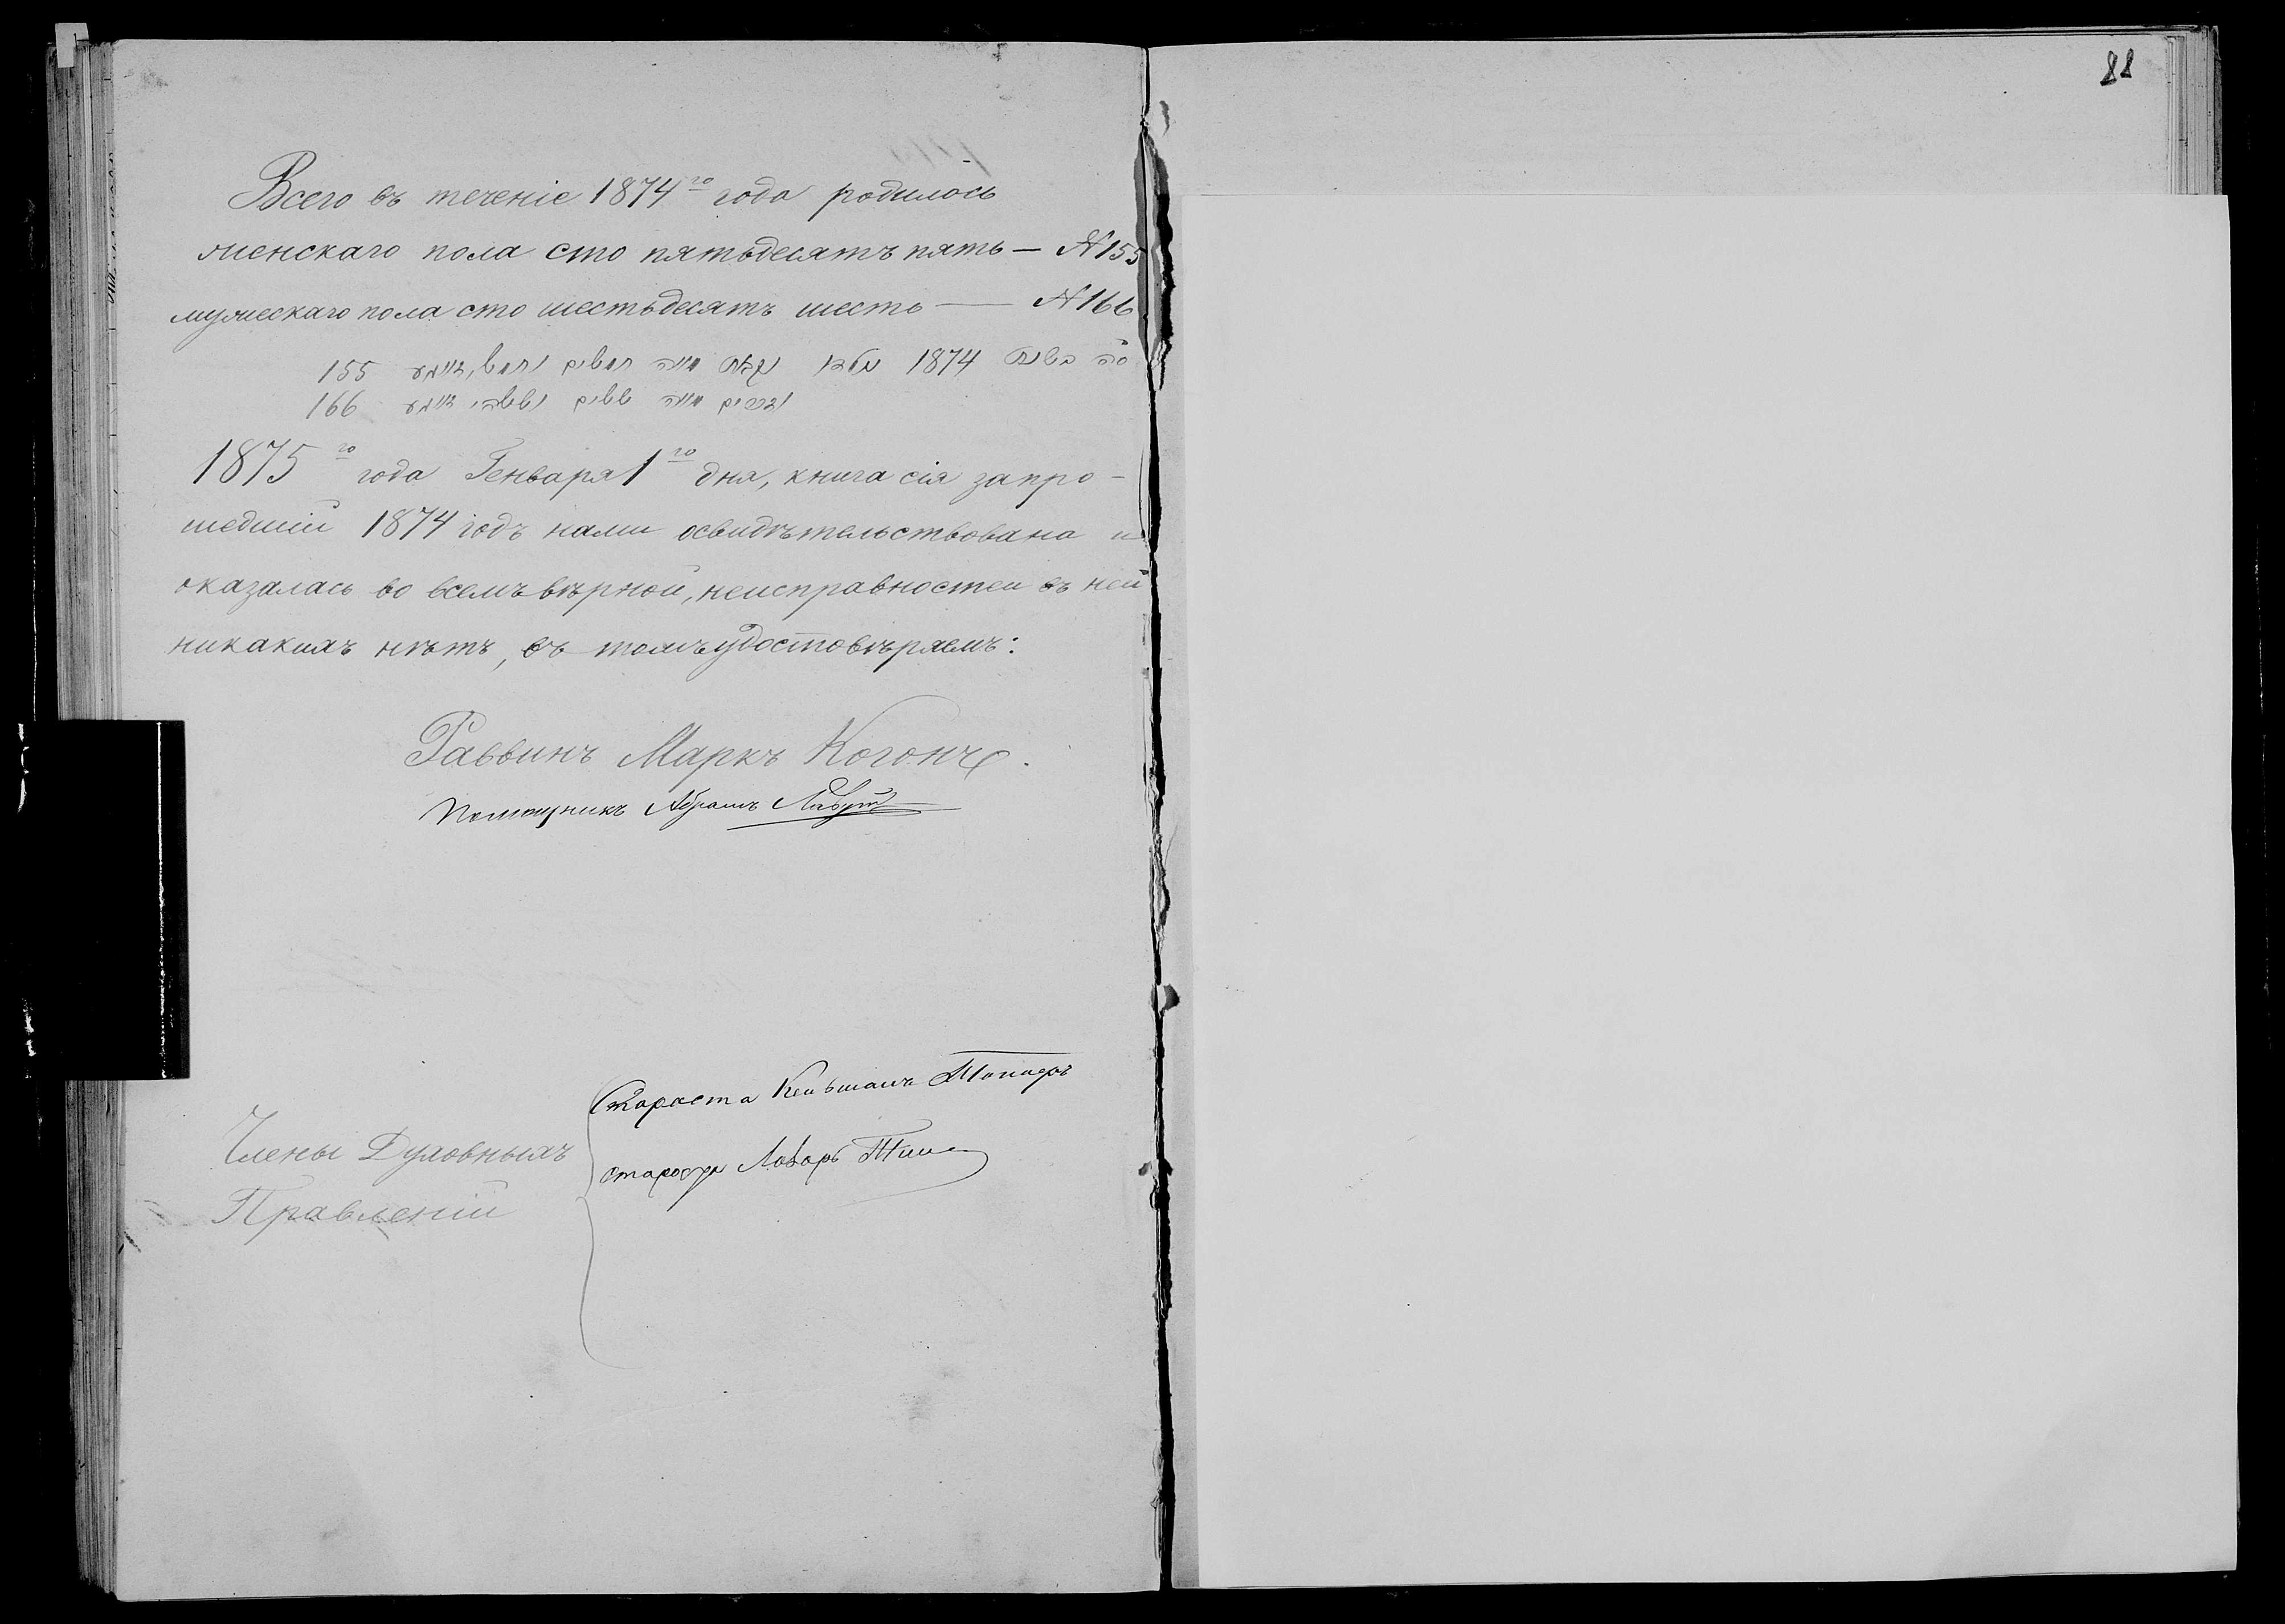 88
Всего въ теченіе 1874го года родилось
женскаго пола сто пятьдесятъ пять — № 155
мужескаго пола сто шестьдесятъ шесть — № 166
סה״כ בשנת 1874 נולדו נקבות מאה חמשים וחמש 155
זכרים מאה ששים וששה 166
1875го года Генваря 1го дня, книга сія запро-
шедшій 1874 годъ нами освидѣтельствована и
оказалась во всемъ вѣрной, неисправностей въ ней
никакихъ нѣтъ, въ томъ удостовѣряемъ:
Раввинъ Маркъ Когонъ.
Помощникъ Абрамъ
Члены Духовныхъ
Правленій
Стараста
староста Лазарь